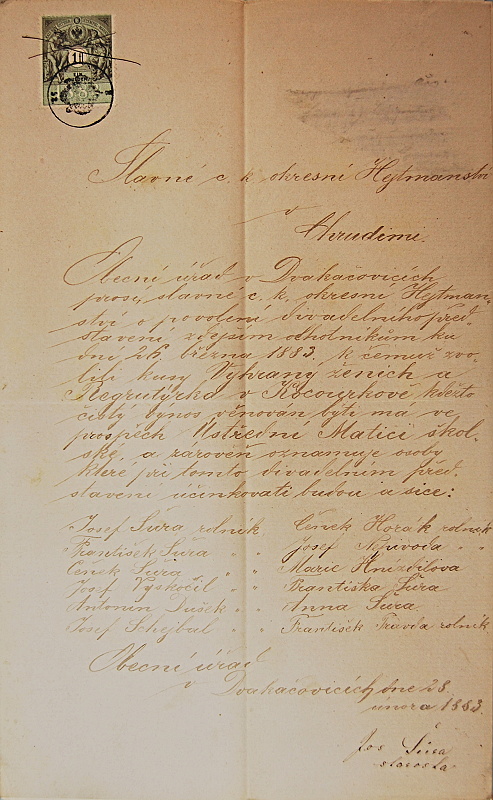 Slavné c. k. okresní Hejtmanství
v
Chrudimi.
Obecní úřad v Dvakačovicích
prosy slavné c. k. okresní Hejtman-
ství o povolení divadelního před-
stavení zdejším ochotníkům ku
dni 26. března 1883. k čemuž zvo-
lili kusy Vybraný ženich a
Regrutýrka v Kocourkově kdežto
čistý vynos věnován býti má ve
prospěch Ústřední Matici škol-
ské, a zároveň oznamuje osoby
které při tomto divadelním před-
stavení účinkovati budou a sice:
Josef Šůra rolník Čeněk Horák rolník
František Šůra " " Josef Nepivoda " "
Čeněk Šůra " " Marie Hnizdilova
Josef Vyskočil " " Františka Šůra
Antonín Dušek " " Anna Šůra
Josef Schejbal " " František Pravda rolník
Obecní úřad
v Dvakačovicích dne 28.
února 1883.
Jos Šůra
starosta